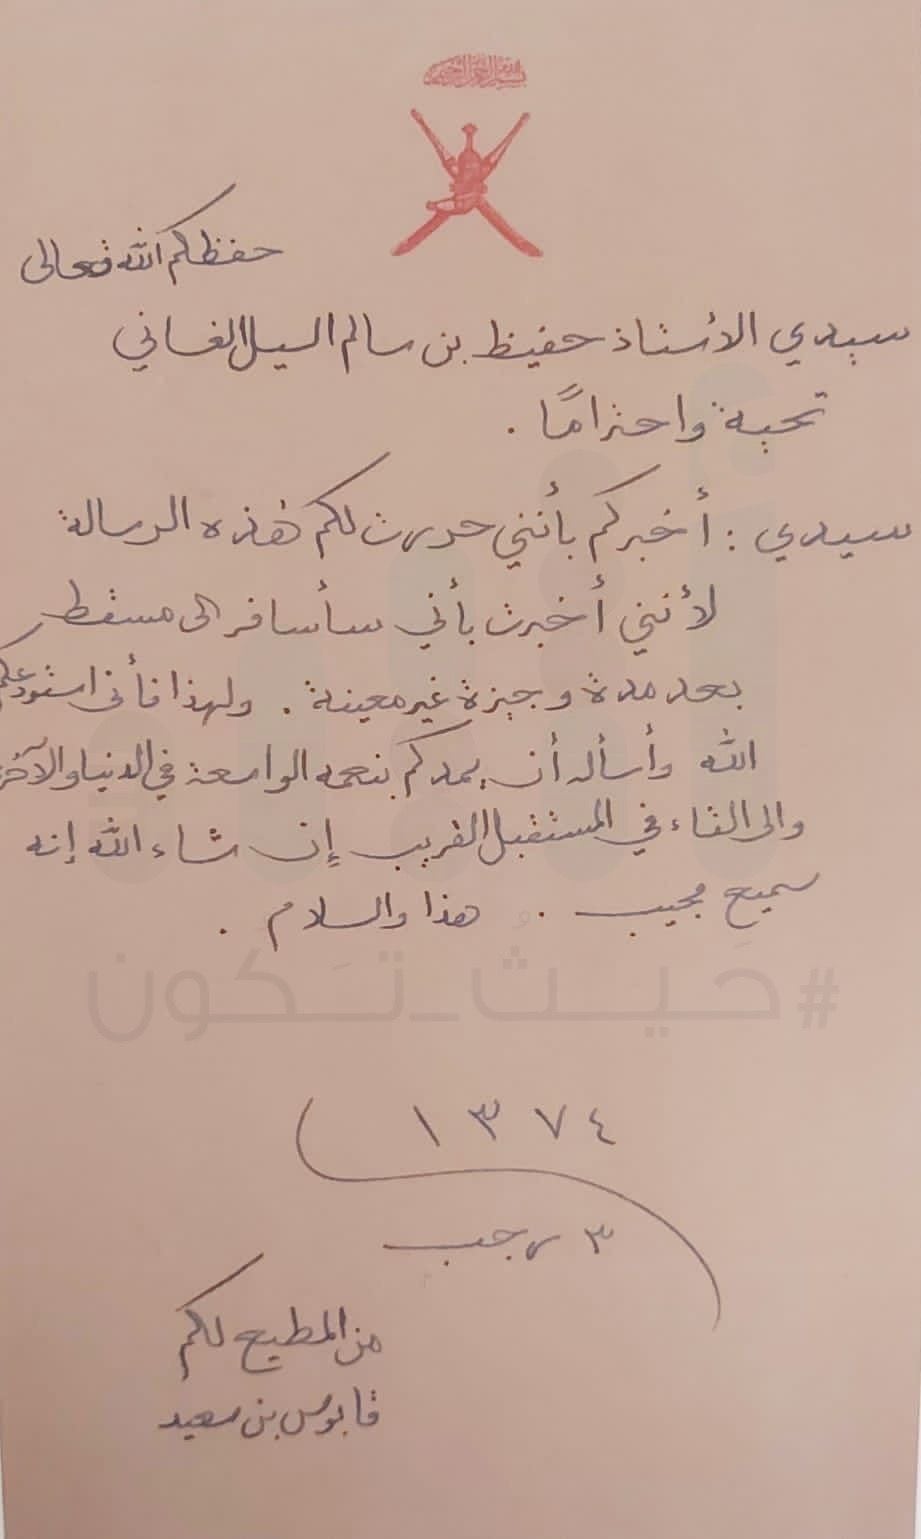 بسم الله الرحمن الرحيم
حفظكم الله تعالى
سيدي الأستاذ حفيظ بن سالم السيل الغساني
تحية واحترامًا .
سيدي : أخبركم بأنني حررت لكم هذه الرسالة
لأنني أخبرت بأني سأسافر الى مسقط
بعد مدة وجيزة غير معينة . ولهذا فأني استودعكم
الله وأسأله أن يمدكم بنعمه الواسعة في الدنيا والآخرة
والى القاء في المستقبل القريب إن شاء الله إنه
سميع مجيب . هذا والسلام .
#حَيـثُ_تَـكون
١٣٧٤
٣ رجب
من المطيع لكم
قابوس بن سعيد